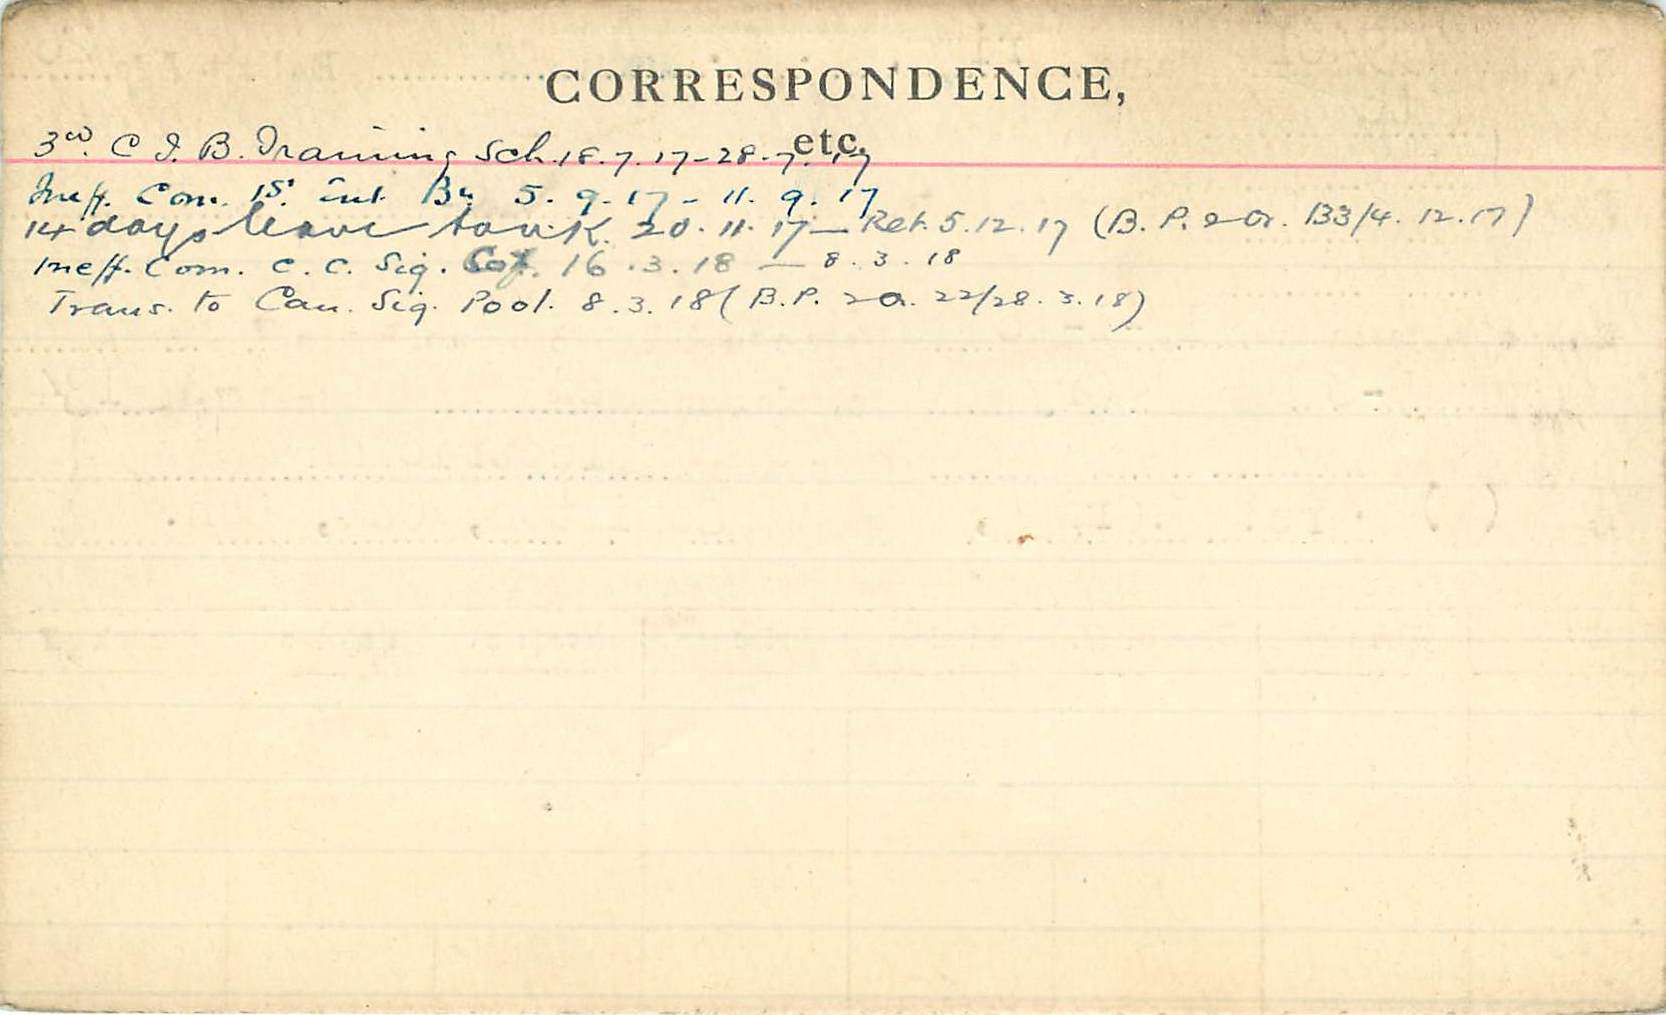 CORRESPONDENCE,
etc.
3rd. C I. B. Training Sch. 18.7.17-28-7.17
Ineff. Com. 1st. inf. Bn 5. 9. 17 - 11. 9. 17
14 days leave to U.K. 20. 11. 17 — Ret. 5.12.17 (B. P. 2 Or. 133/4. 12. 17)
Ineff. Com. C. C. Sig. 16.3.18 — 8.3.18
Trans. to Can. Sig. Pool. 8.3.18 (B.P. 2 O. 22/28.3.18)